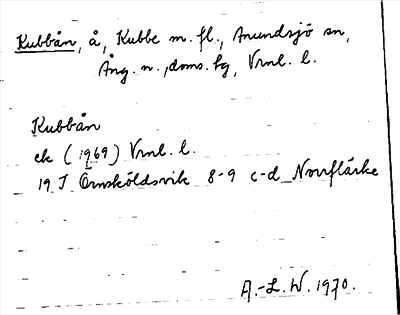 Kubbån, å, Kubbe m. fl., Anundsjö sn,
Ång. n., doms. hg, Vrnl. l.
Kubbån
ek (1969) Vrnl. l.
19 J Örnsköldsvik 8-9 c-d Norrflärke
A.-L. W. 1970.